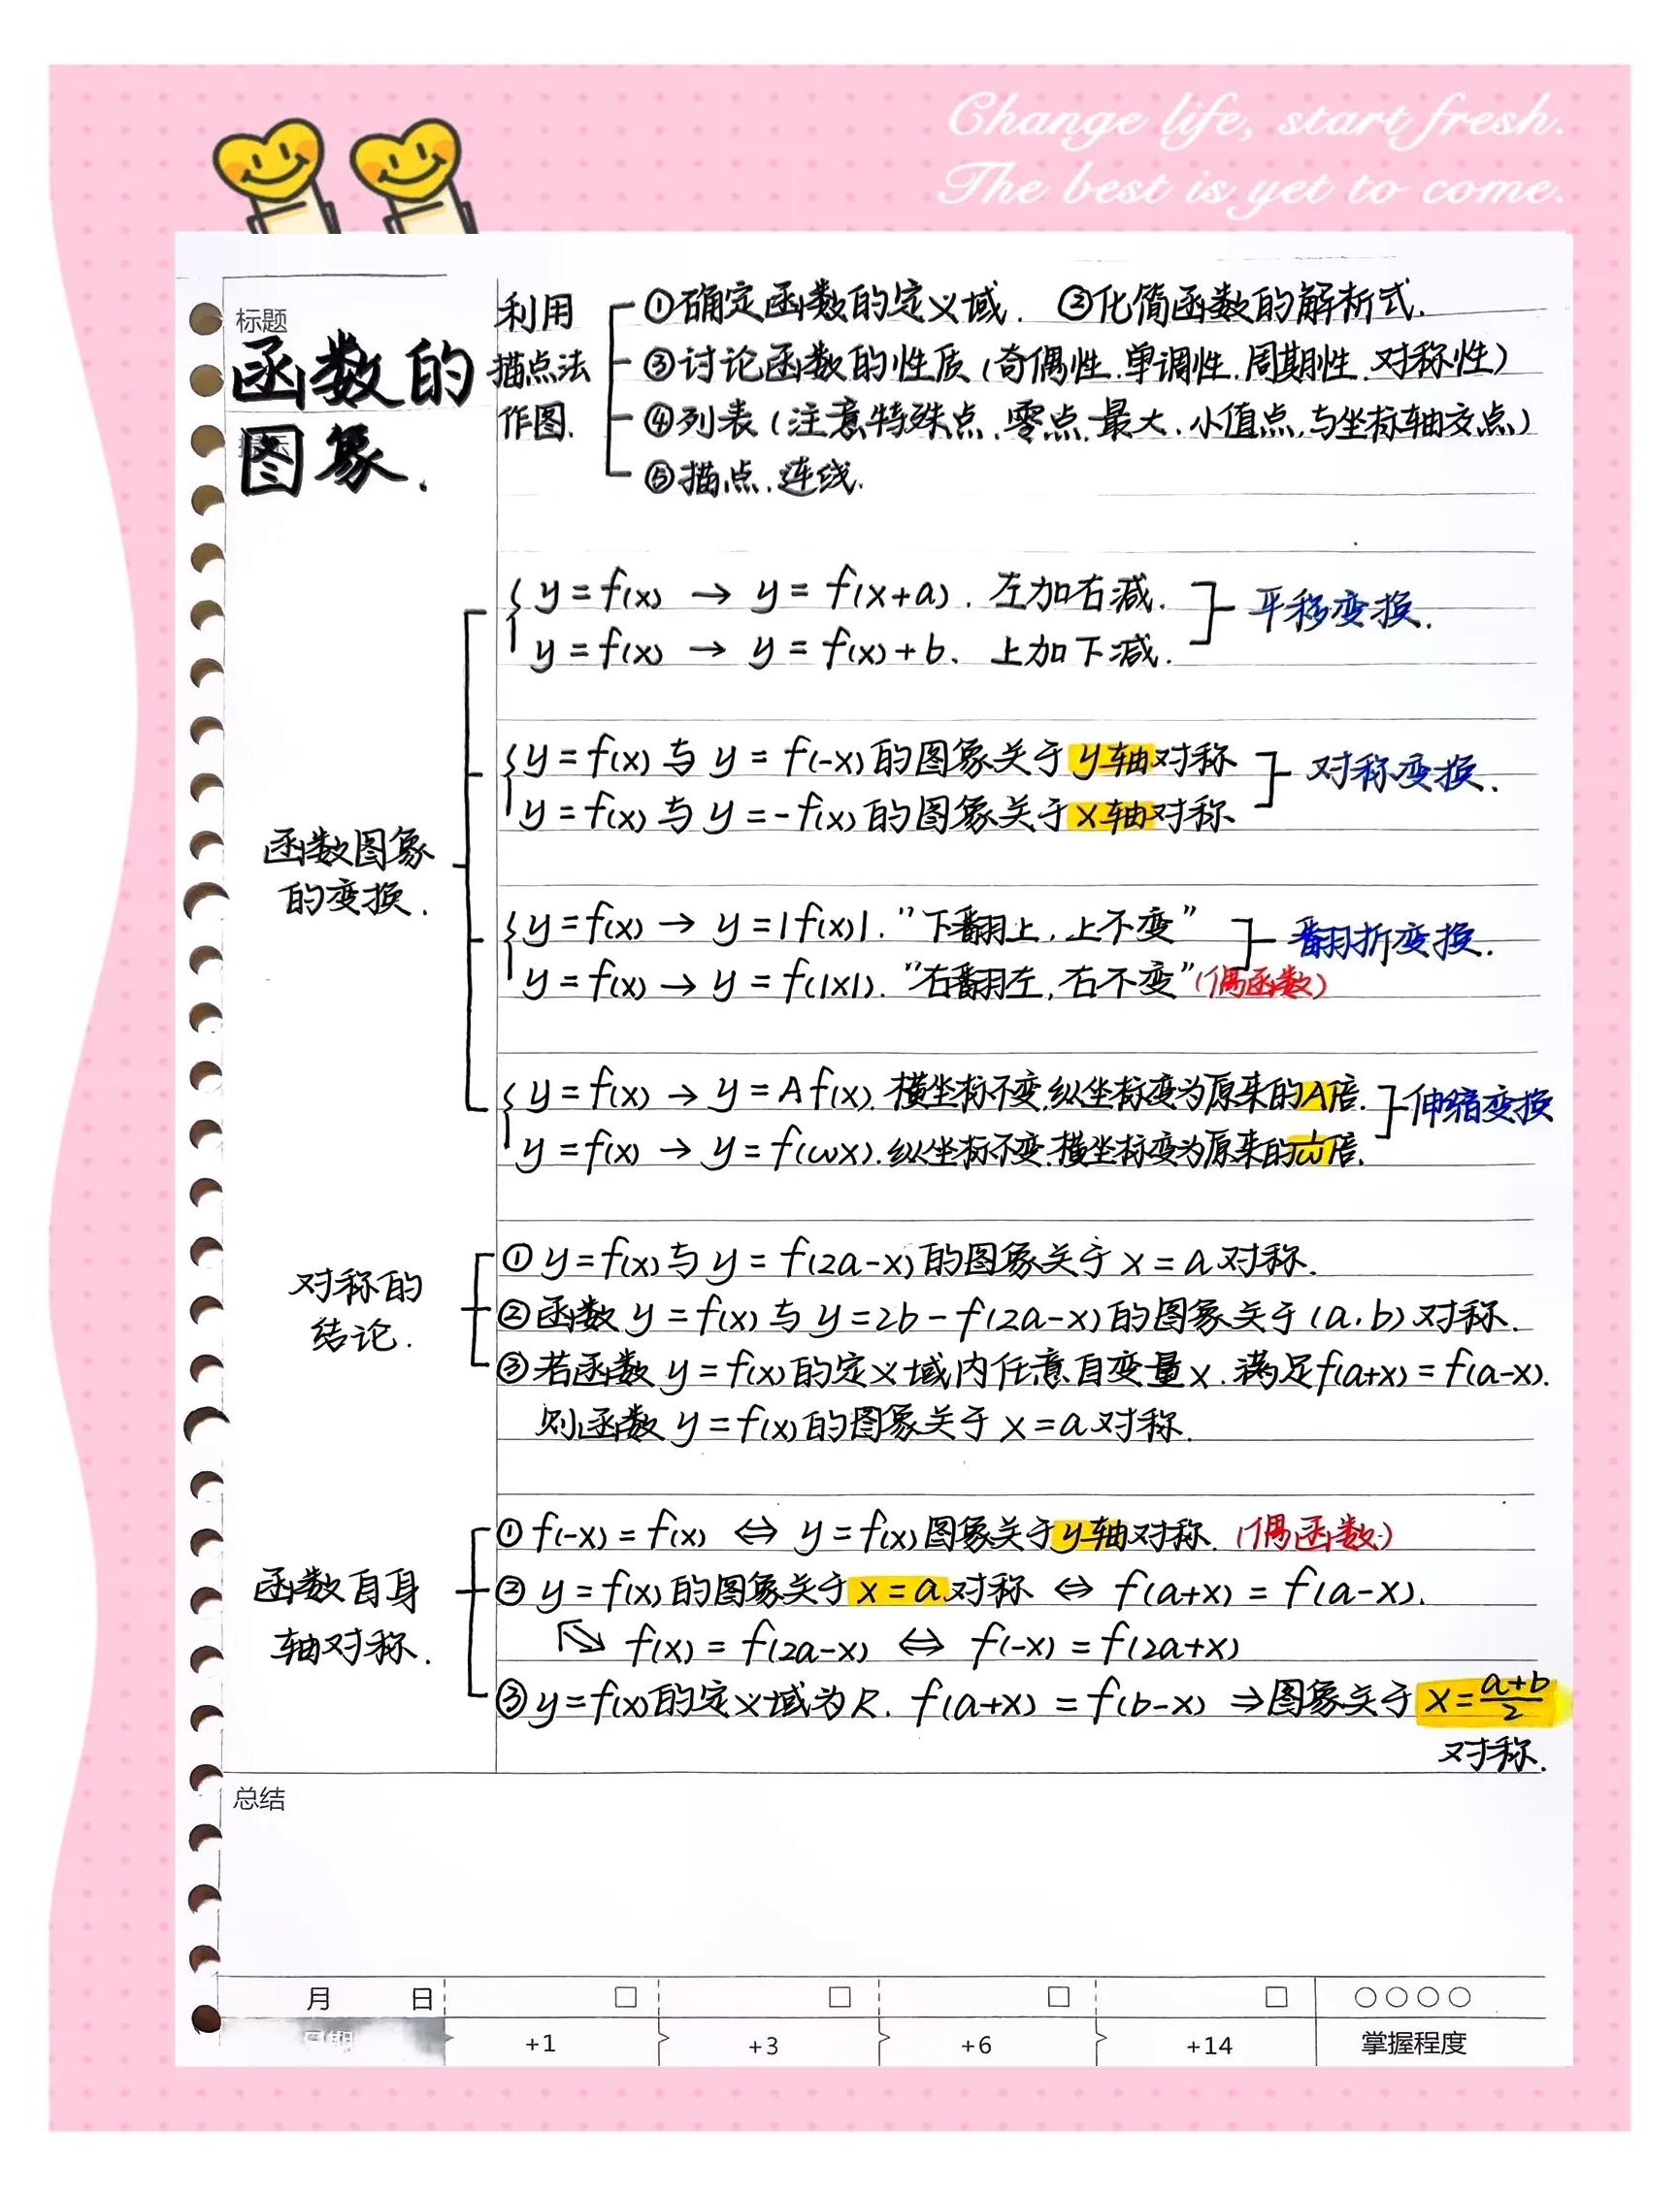 Change life, start fresh.
The best is yet to come.
标题
函数的
图象.
利用
描点法
作图.
①确定函数的定义域. ②化简函数的解析式.
③讨论函数的性质(奇偶性.单调性.周期性.对称性)
④列表(注意特殊点.零点.最大.小值点,与坐标轴交点)
⑤描点.连线.
函数图象
的变换.
y=f(x) → y=f(x+a). 左加右减.
y=f(x) → y=f(x)+b. 上加下减.
平移变换.
y=f(x)与y=f(-x)的图象关于y轴对称
y=f(x)与y=-f(x)的图象关于x轴对称
对称变换.
y=f(x) → y=|f(x)|. "下翻上,上不变"
y=f(x) → y=f(|x|). "右翻左,右不变"(偶函数)
翻折变换.
y=f(x) → y=Af(x).横坐标不变.纵坐标变为原来的A倍.
y=f(x) → y=f(ωx).纵坐标不变.横坐标变为原来的1/ω倍.
伸缩变换
对称的
结论.
①y=f(x)与y=f(2a-x)的图象关于x=a对称.
②函数y=f(x)与y=2b-f(2a-x)的图象关于(a,b)对称.
③若函数y=f(x)的定义域内任意自变量x.满足f(a+x)=f(a-x).
则函数y=f(x)的图象关于x=a对称.
函数自身
轴对称.
①f(-x)=f(x) ⇔ y=f(x)图象关于y轴对称.(偶函数)
②y=f(x)的图象关于x=a对称 ⇔ f(a+x)=f(a-x).
⇔ f(x)=f(2a-x) ⇔ f(-x)=f(2a+x)
③y=f(x)的定义域为R. f(a+x)=f(b-x) ⇒图象关于x=(a+b)/2
对称.
总结
月 日 □ □ □ □ ○○○○
日期 +1 +3 +6 +14 掌握程度